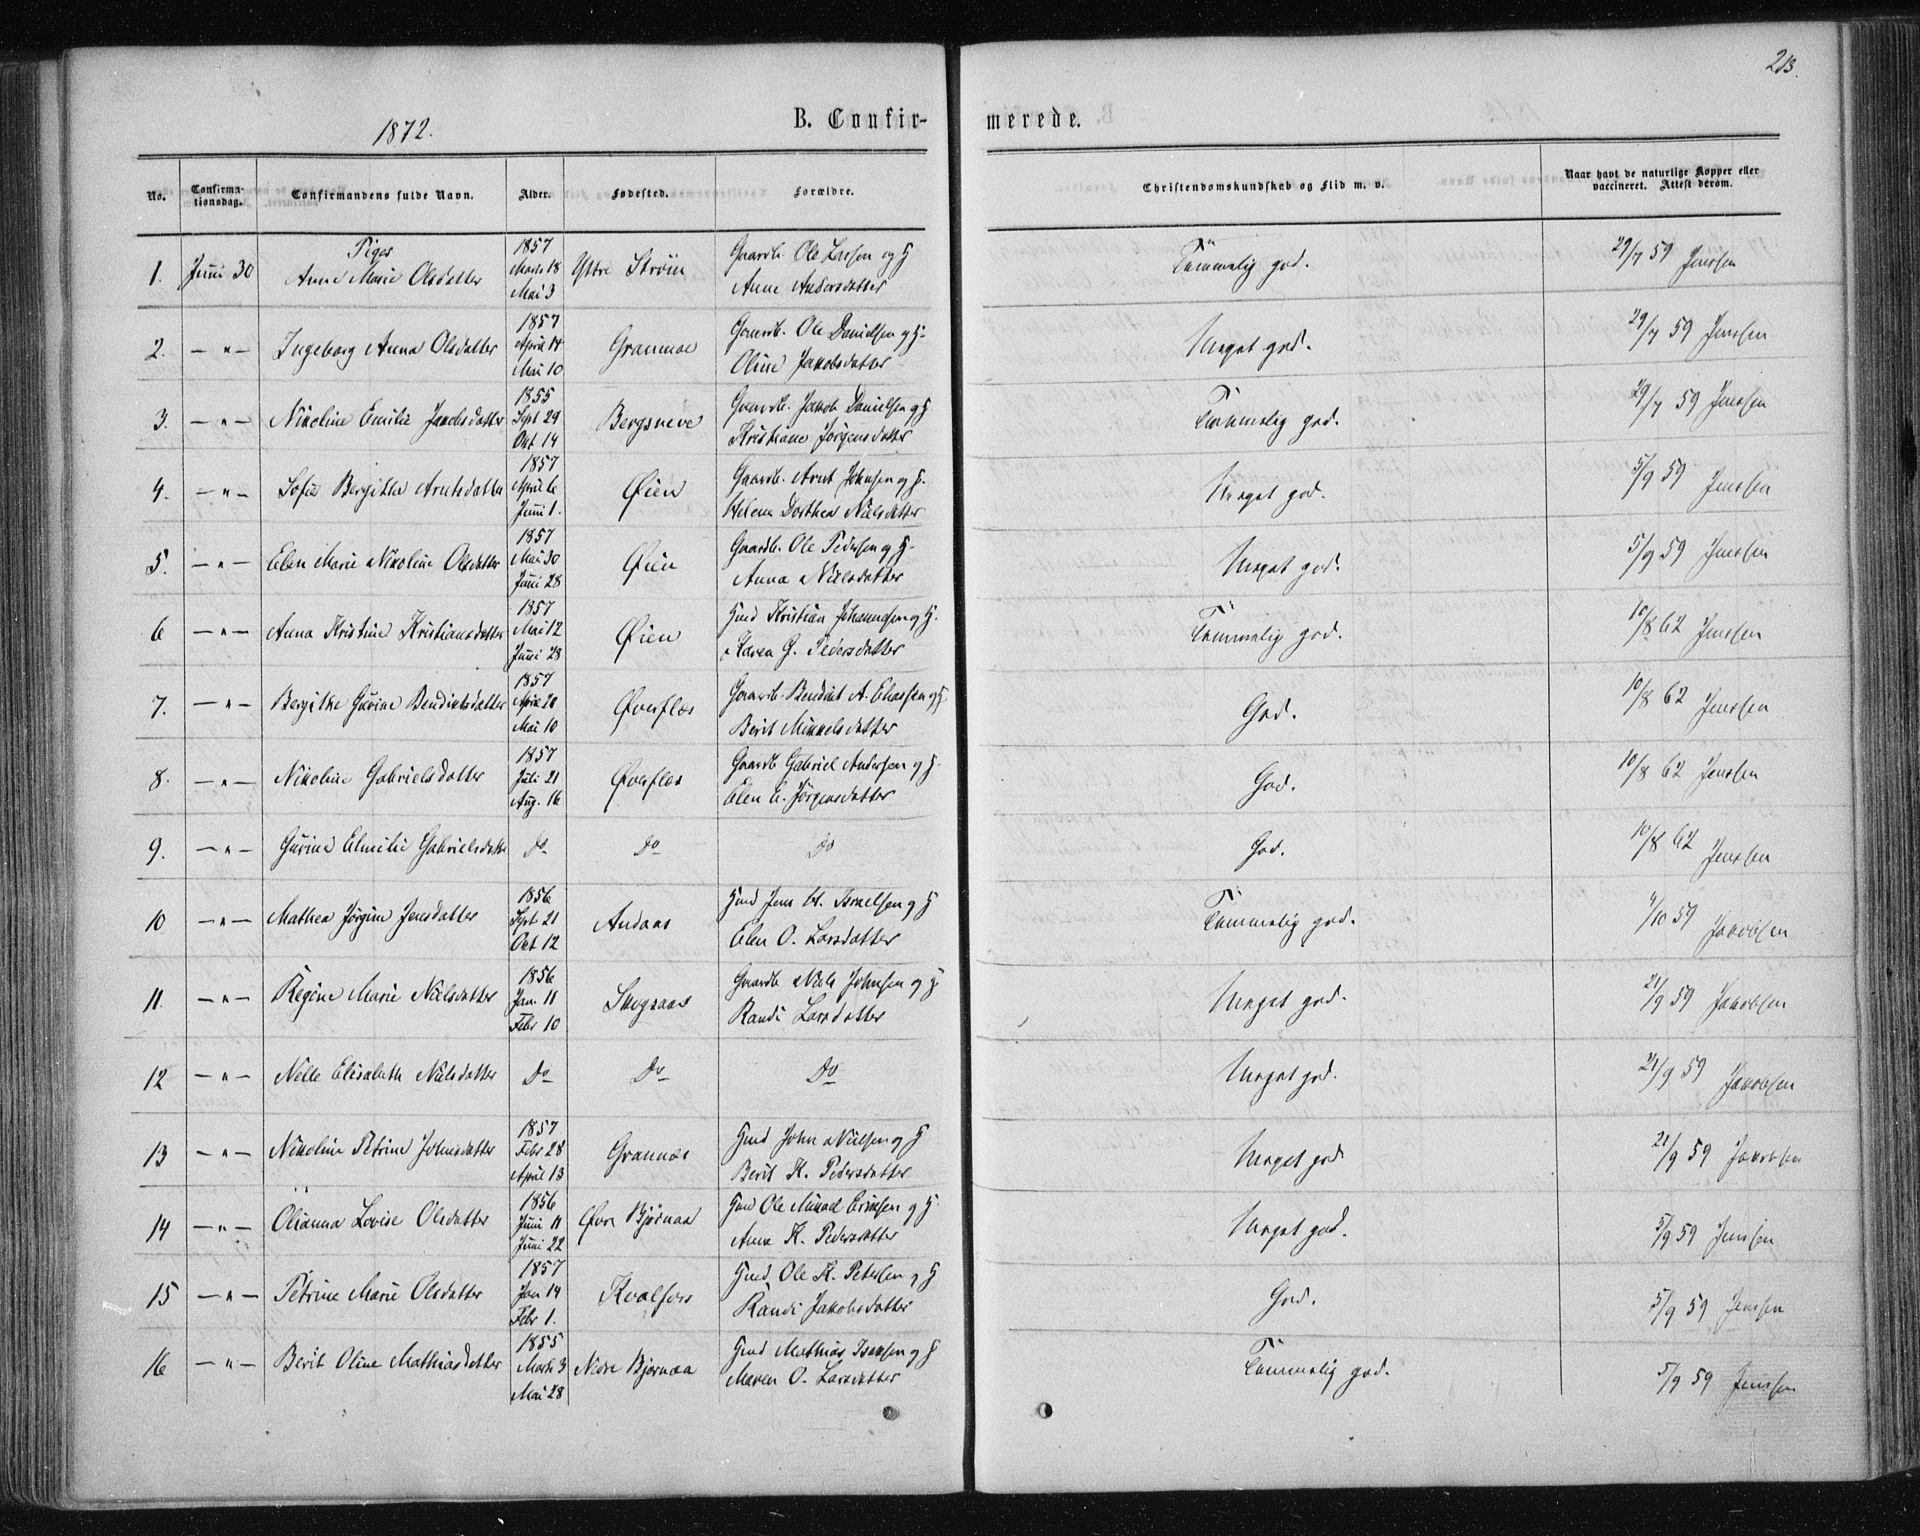 213.
1872.
B. Confir-
merede.
No.
Confirma-
tionsdag.
Confirmandens fulde Navn.
Alder.
Fødested.
Forældre.
Christendomskundskab og Flid m. v.
Naar havt de naturlige Kopper eller
vaccineret. Attest derom.
Piger
1. Juni 30 Anne Marie Olsdatter 1857 Marts 18 Mai 3 Ytre Strøm Gaardb. Ole Larsen og H Anne Andersdatter Temmelig god. 29/7 59 Jenssen
2. — " — Ingeborg Anna Olsdatter 1857 April 14 Mai 10 Granmoe Gaardb. Ole Danielsen og H. Oline Jakobsdatter Meget god. 29/7 59 Jenssen
3. — " — Nikoline Emilie Jakobsdatter 1855 Sept 29 Okt 14 Bergsneve Gaardb. Jakob Danielsen og H Kristiane Jørgensdatter Temmelig god. 29/7 59 Jenssen
4. — " — Sofie Bergitte Arntsdatter 1857 April 6 Juni 1. Øien Gaardb. Arnt Johnsen og H. Helene Dorthea Nielsdatter Meget god. 5/9 59 Jenssen
5. — " — Elen Marie Nikoline Olsdatter 1857 Mai 30 Juni 28 Øien Gaardb. Ole Pedersen og H. Anna Nielsdatter Meget god. 5/9 59 Jenssen
6 — " — Anna Kristine Kristiansdatter 1857 Mai 12 Juni 28 Øien Hmd Kristian Johannesen og H. Karen G. Pedersdatter Temmelig god. 10/8 62 Jenssen
7. — " — Bergitke Gurine Bendiktsdatter 1857 April 20 Mai 10 Øverflos Gaardb. Bendikt A. Eliassen og H. Berit Mikkelsdatter God. 10/8 62 Jenssen
8. — " — Nikoline Gabrielsdatter 1857 Juli 21 Aug. 16 Øverflos Gaardb Gabriel Andersen og H. Elen E. Jørgensdatter God. 10/8 62 Jenssen
9. — " — Gurine Elmilie Gabrielsdatter Do Do Do God. 10/8 62 Jenssen
10 — " — Mathea Jørgine Jensdatter 1856 Sept 21 Okt 12 Andaas Hmd Jens Israelsen og H Elen O. Larsdatter Temmelig god. /10 59 Jakobsen
11. — " — Regine Marie Nielsdatter 1856 Jan. 11 Febr 10 Skogsaas Gaardb Niels Johnsen og H Randi Larsdatter Meget god. 21/9 59 Jakobsen
12 — " — Nelle Elisabeth Nielsdatter Do Do Do Meget god. 21/9 59 Jakobsen
13 — " — Nikoline Petrine Johnsdatter 1857 Febr 28 April 13 Grannæs Hmd John Nielsen og H Berit K. Pedersdatter Meget god 21/9 59 Jakobsen
14 — " — Olianna Lovise Olsdatter 1856 Juni 11 Juni 22 Øvre Bjørnaa Hmd Ole Mikael Eriksen og H. Anne K. Pedersdatter Meget god. 5/9 59 Jenssen
15 — " — Petrine Marie Olsdatter 1857 Jan 14 Febr 1. Kvalfors Hmd. Ole K. Petersen og H Randi Jakobsdatter God. 5/9 59 Jenssen
16 — " — Berit Oline Mathiasdatter 1855 Marts 3 Mai 28 Nedre Bjørnaa Hmd Mathias Isaksen og H Maren O. Larsdatter Temmelig god. 5/9 59 Jenssen